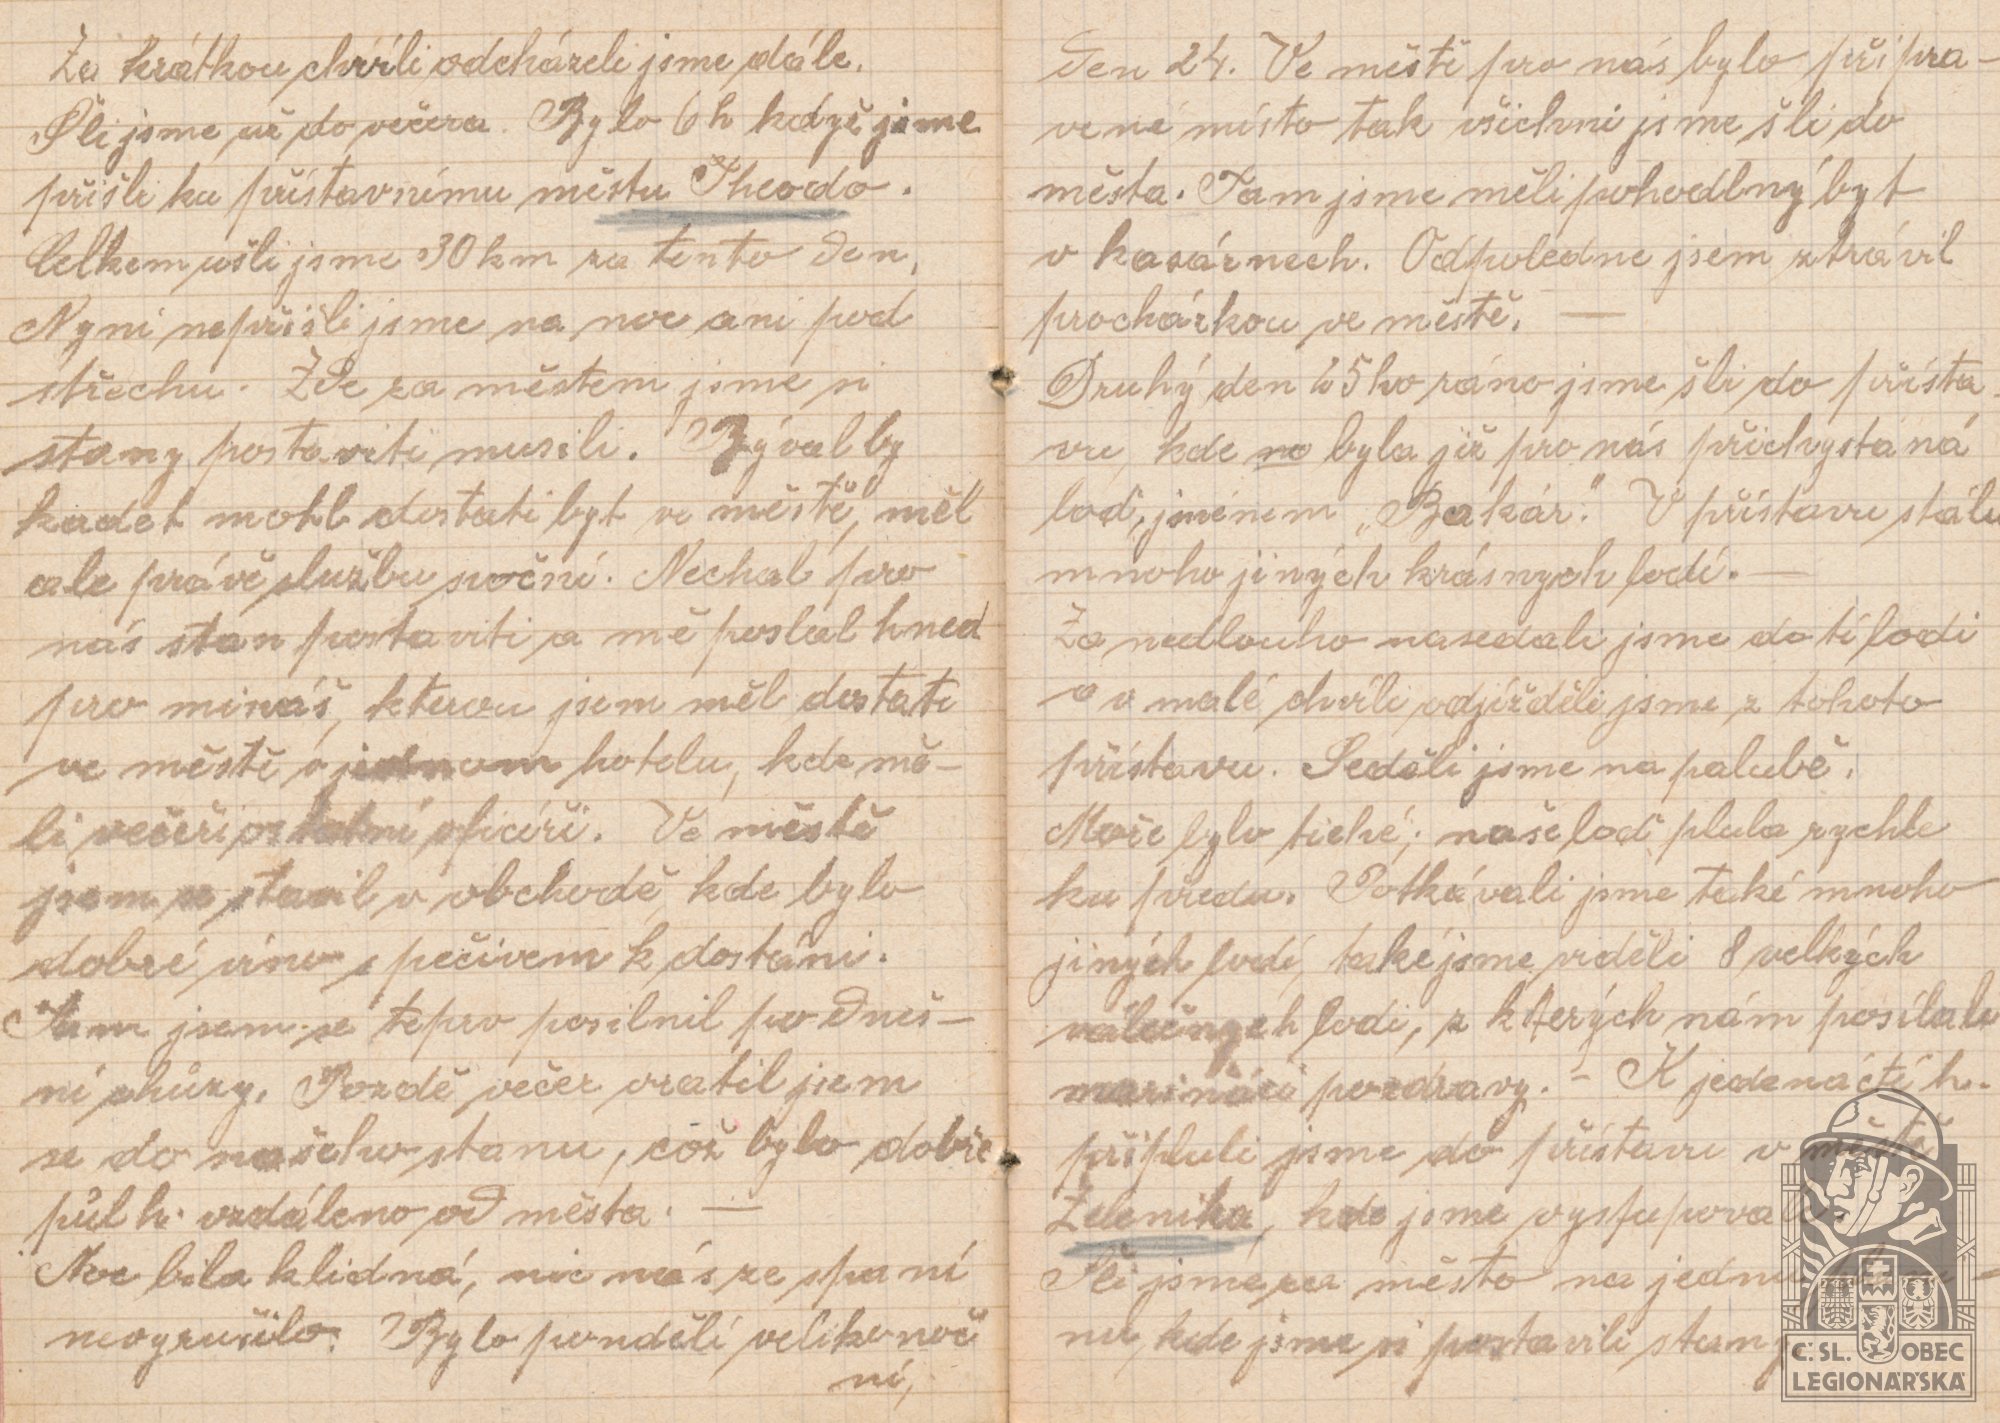 Za krátkou chvíli odcházeli jsme dále.
Šli jsme až do večera. Bylo 6 h když jsme
přišli ku přístavnímu městu Theodo.
Celkem ušli jsme 30 km za tento den,
Nyní nepřišli jsme na noc ani pod
střechu. Zde za městem jsme si
stany postaviti musili. Býval by
kadet mohl dostati byt ve městě, měl
ale právě službu noční. Nechal pro
nás stan postaviti a mě poslal hned
pro mináš, kterou jsem měl dostati
ve městě v jednom hotelu, kde mě-
li večeři ostatní oficíři. Ve městě
jsem se stavil v obchodě, kde bylo
dobré víno s pečivem k dostání.
Tam jsem se tepro posilnil po dneš-
ní chůzy. Pozdě večer vratil jsem
se do našeho stanu, což bylo dobře
půl h. vzdáleno od města. —
Noc bila klidná, nic nás ze spaní
nevyrušilo. Bylo pondělí velikonoč
ní,
Den 24. Ve městě pro nás bylo připra-
vené místo tak všichni jsme šli do
města. Tam jsme měli pohodlný byt
v kasárnech. Odpoledne jsem ztrávil
procházkou ve městě. —
Druhý den 25ho ráno jsme šli do přísta-
vu, kde na byla již pro nás přichystáná
loď, jménem „Bakár". V přístavu stálo
mnoho jiných krásnych lodí. —
Za nedlouho nasedali jsme do tí lodi
a v malé chvíli odjížděli jsme z tohoto
přístavu. Seděli jsme na palubě.
Moře bylo tiché; naše loď plula rychle
ku předu. Potkávali jsme také mnoho
jiných lodí, také jsme viděli 8 velkých
válečnych lodi, z kterých nám posílali
marináci pozdravy. - K jedenácti h.
připluli jsme do přístavu v městě
Zelenika, kde jsme vystupovali.
Šli jsme za město na jednu
nu, kde jsme si postavili stany
Č. SL. OBEC
LEGIONÁŘSKÁ